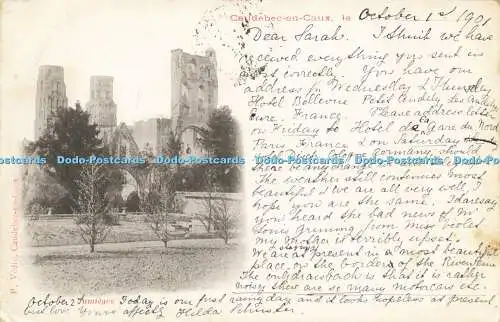 Caudebec-en-Caux, le October 1st 1901
Dear Sarah. I think we have
received everything you sent us
all correctly. You have our
address on Wednesday & Thursday
Hotel Bellevue Petit Andely les Andelys
Eure, France. Please address letters
on Friday to Hotel de Gare du Nord
Paris France & on Saturday
Germany, should
there be any change
The weather still continues most
beautiful & we are all very well, I
hope you are the same. I daresay
you heard the bad news of Mr
Louis from
my Mother is terribly upset.
We are staying in a most beautiful
place on the borders of the River Seine
The only drawback is that it is rather
noisy there are so many motorcars etc.
Jumièges
October 2 Today is our first rainy day and it looks hopeless at present
but love Yours affectly Hilda Schuster
Dodo-Postcards Dodo-Postcards Dodo-Postcards Dodo-Postcards Dodo-Postcards